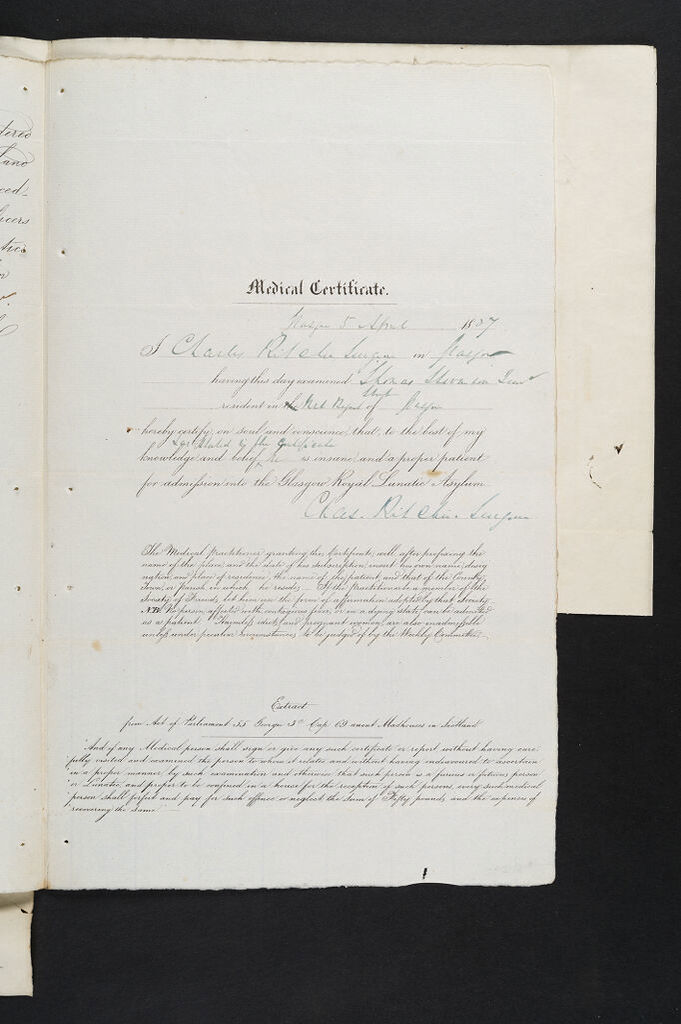 tered
Medical Certificate.
Glasgow 5 April 1837
I Charles Ritchie Surgeon in Glasgow
having this day examined Thomas
resident in of Glasgow
hereby certify, on soul and conscience, that, to the best of my
as stated by the Certificate
knowledge and belief he is insane, and a proper patient
for admission into the Glasgow Royal Lunatic Asylum
Chas. Ritchie. Surgeon
The Medical Practitioner granting this Certificate, will, after prefixing the
name of the place, and the date of his subscription, insert his own name, desig
nation, and place of residence, the name of the patient, and that of the County,
Town, or Parish in which he resides. If the Practitioner is a member of the
Society of Friends, let him use the form of affirmation adopted by that Society.
N.B. No person, affected with contagious fever, or in a dying state, can be admitted
as a patient. Harmless idiots, and pregnant women, are also inadmissible
unless under peculiar circumstances, to be judged of by the Weekly Committee.
Extract
from Act of Parliament 55 George 3d Cap. 69 anent Madhouses in Scotland.
And if any Medical person shall sign or give any such certificate or report without having care
fully visited and examined the person to whom it relates and without having endeavoured to ascertain
in a proper manner by such examination and otherwise that such person is a furious or fatuous person
or Lunatic, and proper to be confined in a house for the reception of such persons, every such medical
person shall forfeit and pay for such offence or neglect the sum of Fifty pounds and the expenses of
recovering the same.